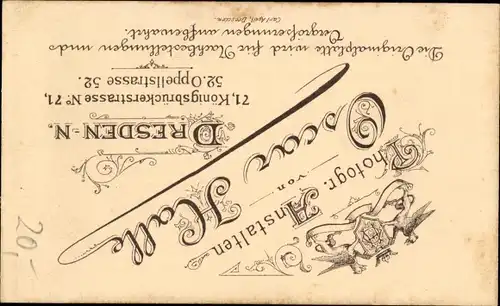 Photogr. Anstalten
von
Oscar Halle
DRESDEN-N.
71, Königsbrückerstrasse No 71,
52. Oppellstrasse 52.
Die Originalplatte wird für Nachbestellungen und
Vergrößerungen aufbewahrt.
20,-